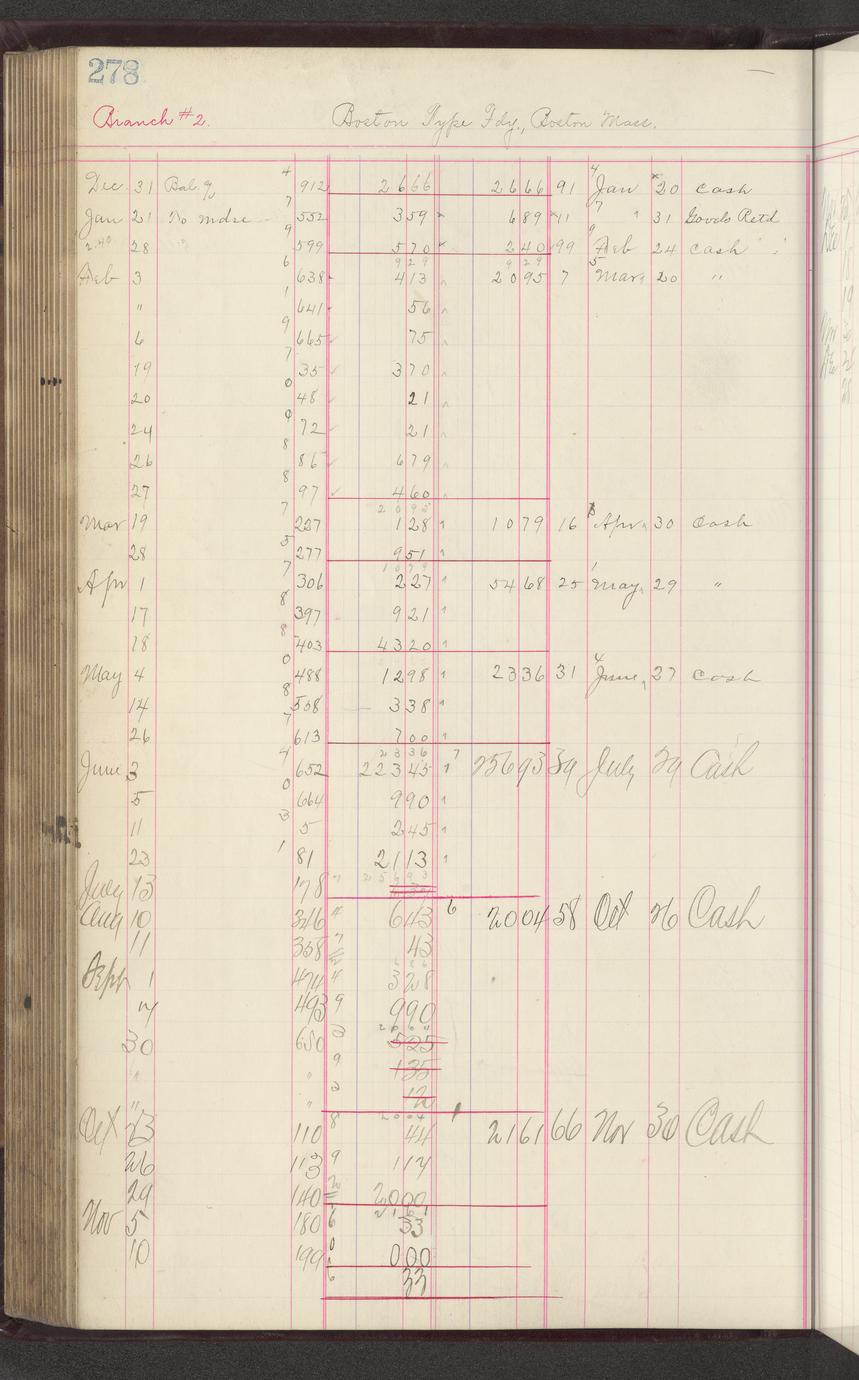 278
Branch #2. Boston Type Fdy., Boston Mass.
4 4
Dec. 31 Bal. 912 2666 2666 91 Jan 20 cash
7 7
Jan 21 To mdse 552 359 689 11 " 31 Goods Retd
9 9
28 599 570 240 99 Feb 24 cash
6 929 929 5
Feb 3 638 413 2095 7 Mar 20 "
1
" 641 56
9
6 665 75
7
19 35 370
0
20 48 21
9
24 72 21
8
26 86 679
8
27 97 460
7 2095
Mar 19 227 128 1079 16 Apr 30 Cash
5
28 277 951
7 1079 1
Apr 1 306 227 5468 25 May 29 "
8
17 397 921
8
18 403 4320
0 4
May 4 488 1298 2336 31 June 27 cash
8
14 558 338
7
26 613 700
4 2336 7
June 3 652 22345 25693 39 July 29 Cash
0
5 664 990
3
11 5 245
1
23 81 2113
25693
July 13 178
Aug 10 326 643 6 2004 58 Oct 26 Cash
11 358 7 43
686
Sept 1 474 328
14 493 9 990
2004
30 650 3 525
" " 9 135
" " 2 12
2004
Oct 23 110 8 44 2161 66 Nov 30 Cash
26 113 9 117
29 140 2000
2161
Nov 5 180 6 33
10 199 0 000
6 33